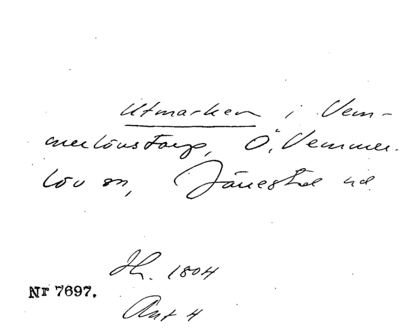 Utmarken i Vem-
merlövstorp, Ö. Vemmer-
löv sn, Järrestad hd
Sk. 1804
Nr 7697.
Akt 4